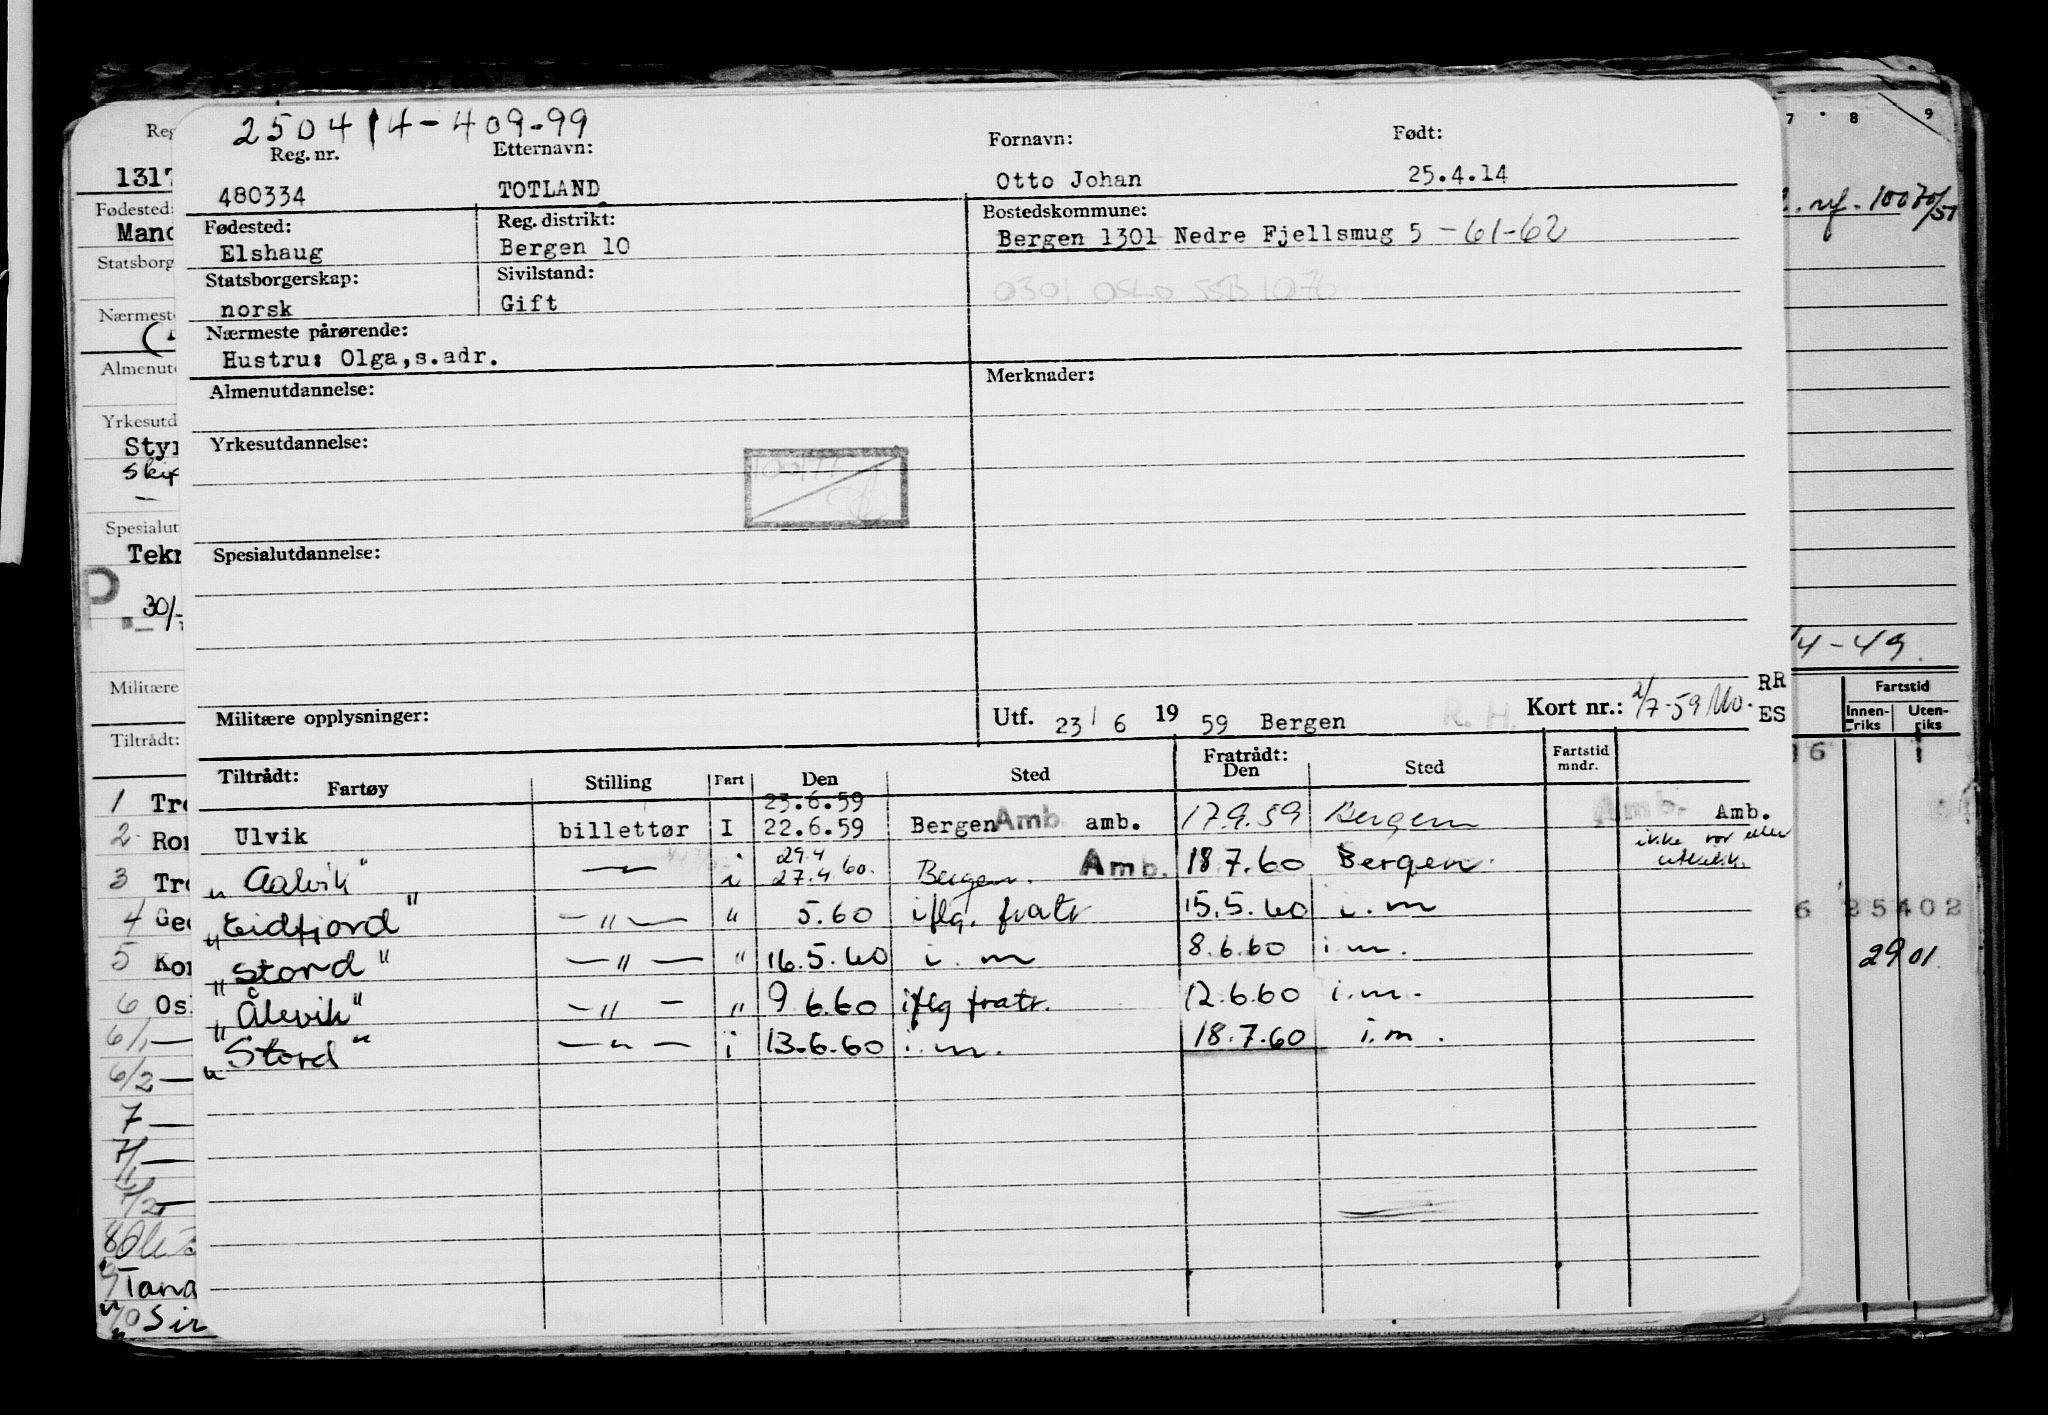 250414-409-99
Reg. nr. Etternavn: Fornavn: Født:
480334 TOTLAND Otto Johan 25.4.14
Fødested: Reg. distrikt: Bostedskommune:
Elshaug Bergen 10 Bergen 1301 Nedre Fjellsmug 5 -61-62
Statsborgerskap: Sivilstand: 0301 OSLO SSB 1070
norsk Gift
Nærmeste pårørende:
Hustru: Olga,s.adr.
Almenutdannelse: Merknader:
Yrkesutdannelse:
Spesialutdannelse:
Militære opplysninger: Utf. 23/6 1959 Bergen R. H. Kort nr.: 2/7-59 Mo. RR
ES
Tiltrådt: Fratrådt:
Fartøy Stilling Fart Den Sted Den Sted Fartstid mndr.
23.6.59
Ulvik billettør I 22.6.59 Bergen Amb. amb. 17.9.59 Bergen Amb. Amb.
29.4
"Aalvik" — " — i 27.4 60. Bergen. Amb. 18.7.60 Bergen.
"Eidfjord" — " — " 5.60 iflg. fratr 15.5.60 i.m
"Stord" — " — " 16.5.60 i.m 8.6.60 i.m.
"Ålvik" — " — " 9.6.60 iflg fratr. 12.6.60 i.m.
"Stord" — " — i 13.6.60 i.m. 18.7.60 i.m.
Reg
1317
Fødested:
Mand
Statsborg
Nærmeste
Almenutd
Yrkesutd
Styr
Skip
Spesialut
Tekn
30/
Militære
Tiltrådt:
1 Tro
2 Ron
3 Tro
4 Geo
5 Kor
6 Os
6/1 —
6/2 —
7 —
7/1 —
7/2 —
8
9 Tana
10 Sir
7 8 9
4-49
Fartstid
Innen-riks Uten-riks
6 25402
29 01